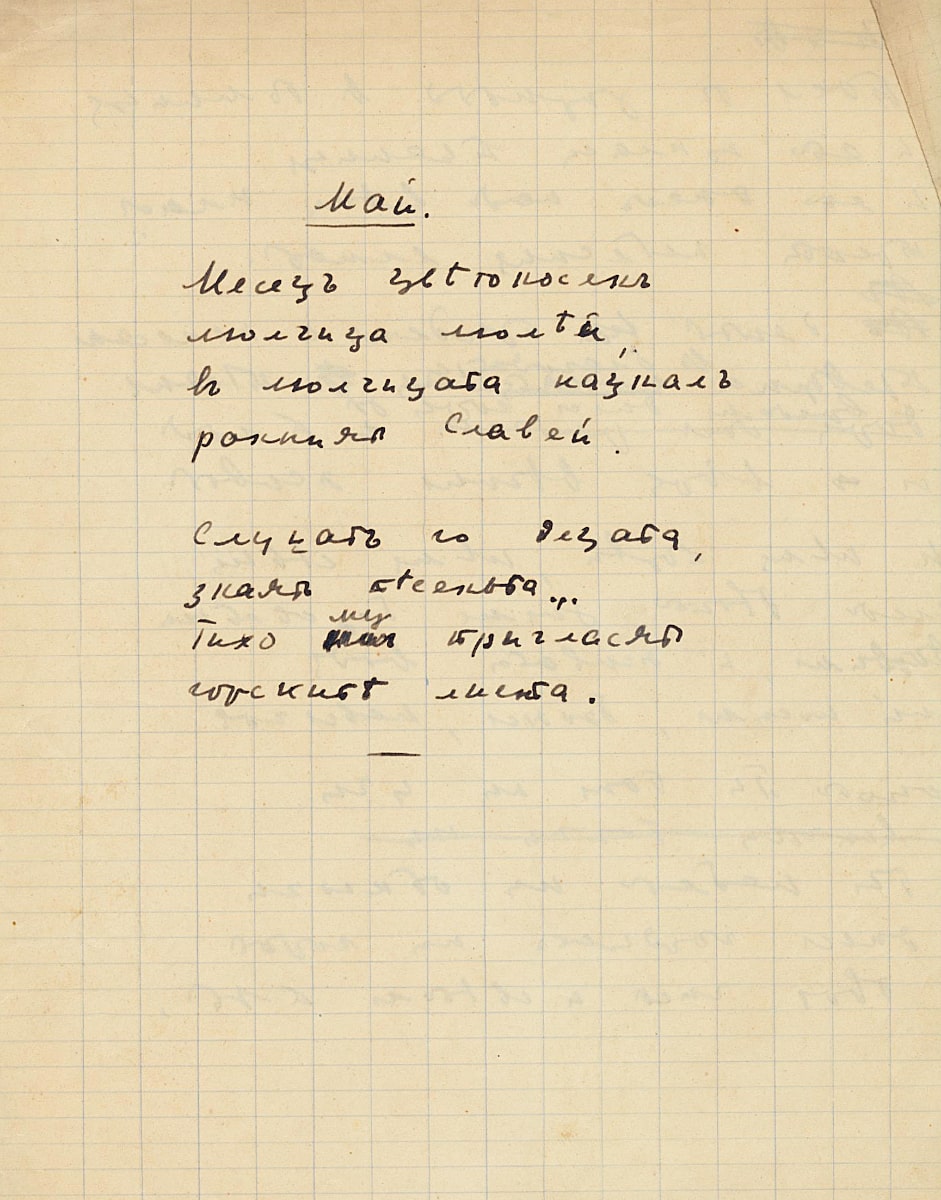 Май.
Месецъ цвѣтоносенъ
люлчица люлѣй,
въ люлчицата кацналъ
ранниятъ Славей.
Слушатъ го децата,
знаятъ пѣсеньта...
Тихо му пригласятъ
горскитѣ листа.